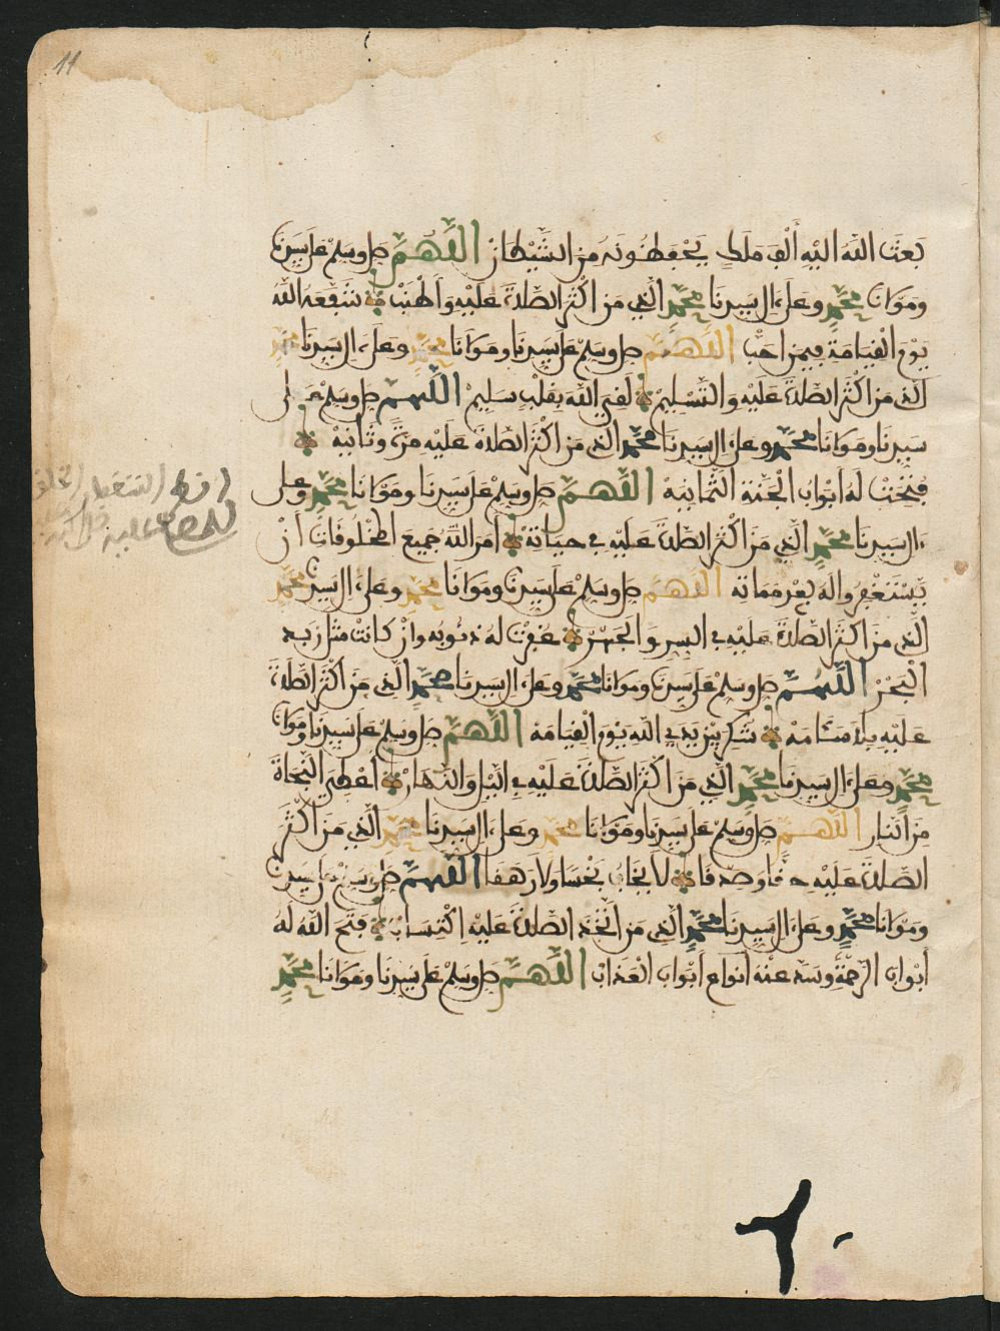 11
بعث الله اليه ألف ملك يحفظونه من الشيطان اللهم صل وسلم على سيدنا
ومولانا محمد وعلى ءال سيدنا محمد الذي من اكثر الصلاة عليه وأطنب شفعه الله
يوم القيامة فيمن احب اللهم صل وسلم على سيدنا ومولانا محمد وعلى ءال سيدنا محمد
الذي من اكثر الصلاة عليه والتسليم لقي الله بقلب سليم اللهم صل وسلم على
سيدنا ومولانا محمد وعلى ءال سيدنا محمد الذي من اكثر الصلاة عليه مرة وثانية
فتحت له أبواب الجنة الثمانية اللهم صل وسلم على سيدنا ومولانا محمد وعلى
ءال سيدنا محمد الذي من اكثر الصلاة عليه في حياته أمر الله جميع المخلوقات أن
يستغفروا له بعد مماته اللهم صل وسلم على سيدنا ومولانا محمد وعلى ءال سيدنا محمد
الذي من اكثر الصلاة عليه في السر والجهر غفرت له ذنوبه وان كانت مثل زبد
البحر اللهم صل وسلم على سيدنا ومولانا محمد وعلى ءال سيدنا محمد الذي من اكثر الصلاة
عليه بلا سئامة شكر بين يدي الله يوم القيامة اللهم صل وسلم على سيدنا ومولانا
محمد وعلى ءال سيدنا محمد الذي من اكثر الصلاة عليه في اليل والنهار أعطي النجاة
من النار اللهم صل وسلم على سيدنا ومولانا محمد وعلى ءال سيدنا محمد الذي من اكثر
الصلاة عليه حقا وصدقا لا يخاف بخسا ولا رهقا اللهم صل وسلم على سيدنا
ومولانا محمد وعلى ءال سيدنا محمد الذي من اتخذ الصلاة عليه اكتساب فتح الله له
أبواب الرحمة وسد عنه أنواع أبواب العذاب اللهم صل وسلم على سيدنا ومولانا محمد